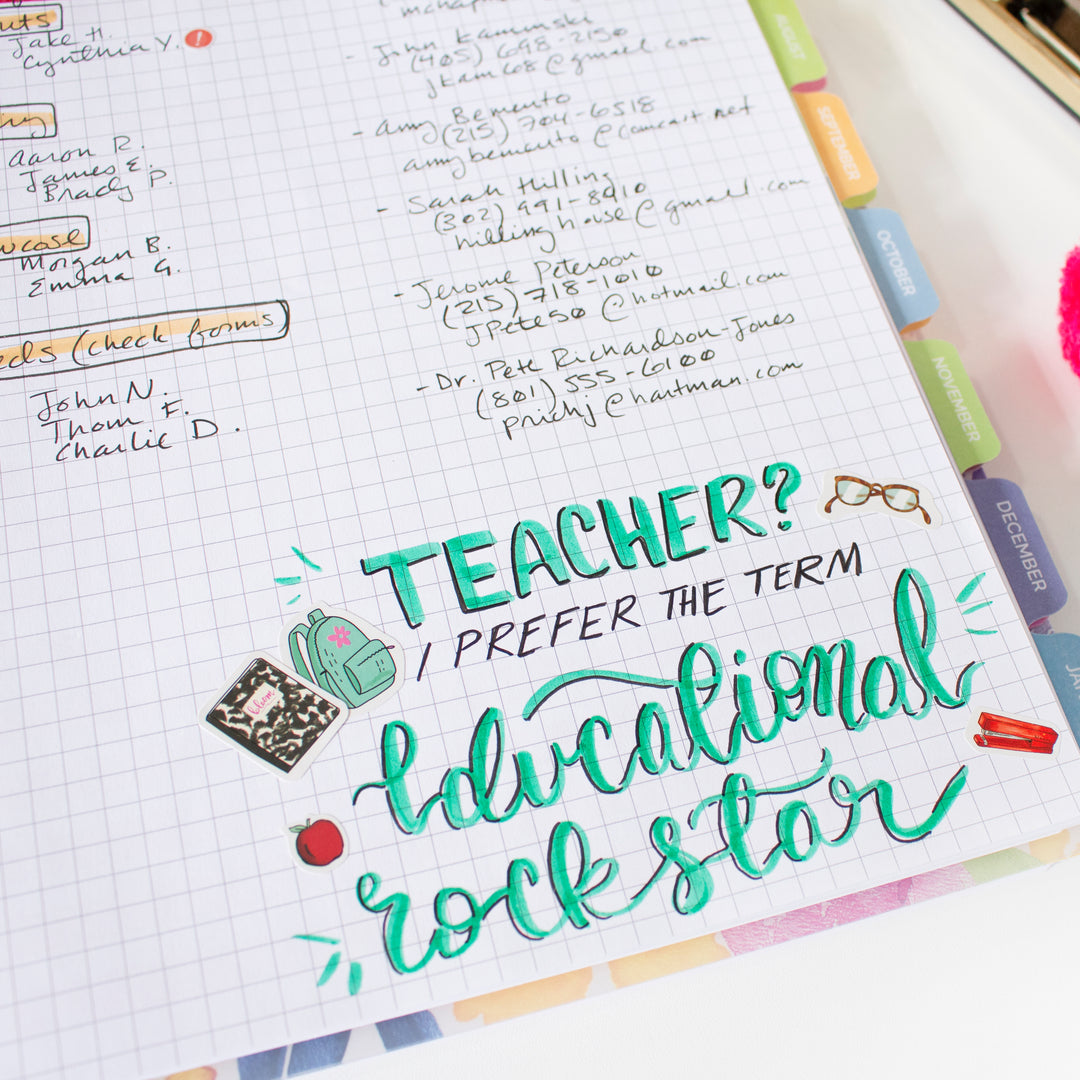 Jake H.
Cynthia Y.
Aaron R.
James E.
Brady P.
Morgan B.
Emma G.
(check forms)
John N.
Thom F.
Charlie D.
- John Kaminski
(405) 698-2150
jkam68@gmail.com
- Amy Bemento
(215) 704-6518
amybemento@comcast.net
- Sarah Hilling
(302) 991-8910
hillinghouse@gmail.com
- Jerome Peterson
(215) 718-1010
JPete50@hotmail.com
- Dr. Pete Richardson-Jones
(801) 555-6100
prichj@hartman.com
TEACHER?
I PREFER THE TERM
Educational
rock star
bloom
AUGUST
SEPTEMBER
OCTOBER
NOVEMBER
DECEMBER